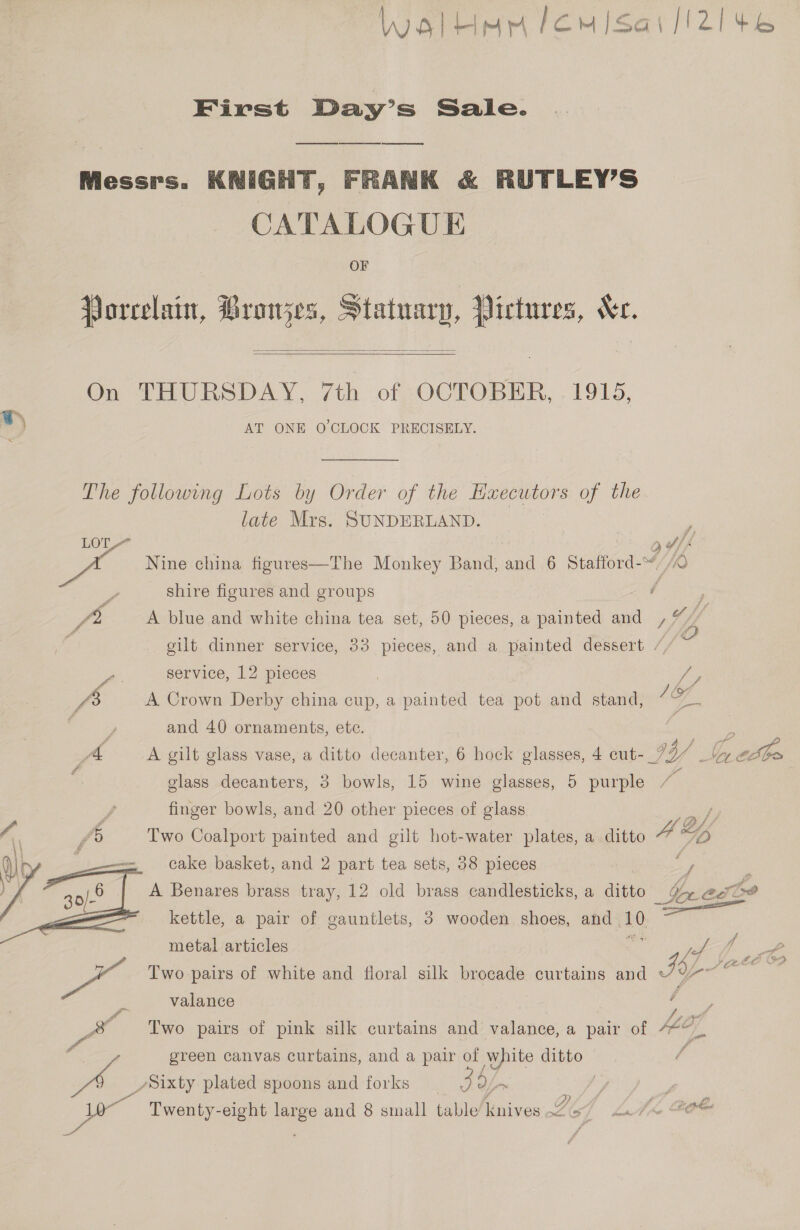 WA/HMM/CM/Sal/12/46
First Day's Sale.
Messrs. KNIGHT, FRANK & RUTLEY'S
CATALOGUE
OF
Porcelain, Bronzes, Statuary, Pictures, &c.
On THURSDAY, 7th of OCTOBER, 1915,
AT ONE O'CLOCK PRECISELY.
The following Lots by Order of the Executors of the
late Mrs. SUNDERLAND.
LOT
1 Nine china figures—The Monkey Band, and 6 Stafford-
shire figures and groups
2 A blue and white china tea set, 50 pieces, a painted and
gilt dinner service, 33 pieces, and a painted dessert
service, 12 pieces
3 A Crown Derby china cup, a painted tea pot and stand,
and 40 ornaments, etc.
4 A gilt glass vase, a ditto decanter, 6 hock glasses, 4 cut-
glass decanters, 3 bowls, 15 wine glasses, 5 purple
finger bowls, and 20 other pieces of glass
5 Two Coalport painted and gilt hot-water plates, a ditto
cake basket, and 2 part tea sets, 38 pieces
30/- 6 A Benares brass tray, 12 old brass candlesticks, a ditto
kettle, a pair of gauntlets, 3 wooden shoes, and 10
metal articles
7 Two pairs of white and floral silk brocade curtains and
valance
8 Two pairs of pink silk curtains and valance, a pair of
green canvas curtains, and a pair of white ditto
9 Sixty plated spoons and forks
10 Twenty-eight large and 8 small table knives